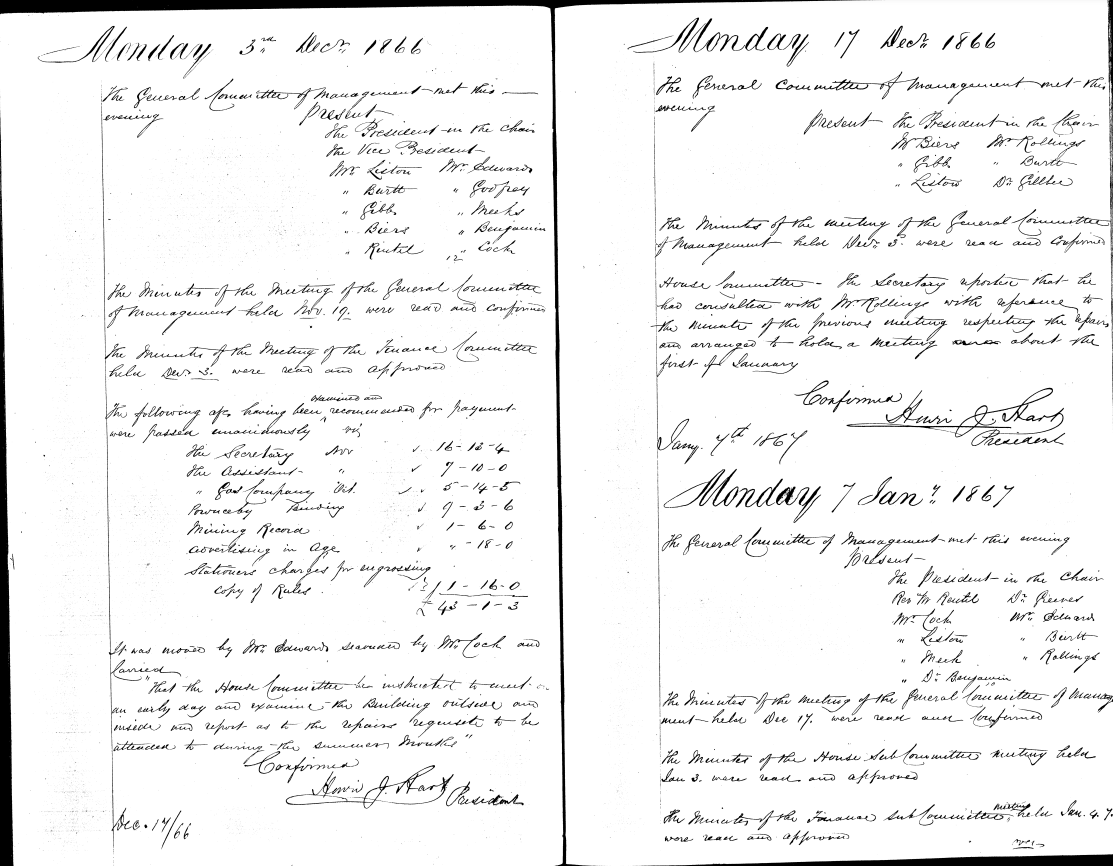 Monday 3rd Decr. 1866
The General Committee of Management met this
evening
Present
The President in the chair
The Vice President
Mr. Liston Mr. Edwards
" Burtt " Godfrey
" Gibb " Meeks
" Biers " Benjamin
" Reutel " Cock
12
The Minutes of the Meeting of the General Committee
of Management held Nov. 19. were read and confirmed
The Minutes of the Meeting of the Finance Committee
held Decr. 3. were read and approved
examined and
The following a/cs having been recommended for payment
were passed unanimously viz
The Secretary Nov 16-13-4
The Assistant " 7-10-0
" Gas Company Oct. 5-14-5
9-3-6
Mining Record 1-6-0
Advertising in Age " -18-0
Stationers charges for engrossing
copy of Rules. 1-16-0
£ 43-1-3
It was moved by Mr. Edwards seconded by Mr. Cock and
Carried
"That the House Committee be instructed to meet on
an early day and examine the Building outside and
inside and report as to the repairs requisite to be
attended to during the summer months"
Confirmed
Henri J. Hart President
Dec. 17/66
Monday 17 Decr. 1866
The General Committee of Management met this
evening
Present The President in the Chair
Mr Biers Mr. Rollings
" Gibb " Burtt
" Liston Dr. Gilbee
The Minutes of the meeting of the General Committee
of Management held Decr. 3. were read and confirmed
House Committee - The Secretary reported that he
had consulted with Mr Rollings with reference to
the minute of the previous meeting respecting the repairs
and arranged to hold a meeting about the
first of January
Confirmed
Henri J. Hart
President
Jany. 7th 1867
Monday 7 Jany. 1867
The General Committee of Management met this evening
Present
The President in the Chair
Rev Mr Reutel Dr. Reeves
Mr. Cock Mr. Edwards
" Liston " Burtt
" Meek " Rollings
" Dr. Benjamin
The Minutes of the meeting of the General Committee of Manage
ment held Dec 17. were read and Confirmed
The Minutes of the House Sub Committee meeting held
Jan 3. were read and approved
meeting
The Minutes of the Finance sub Committee held Jan. 4. 7.
were read and approved